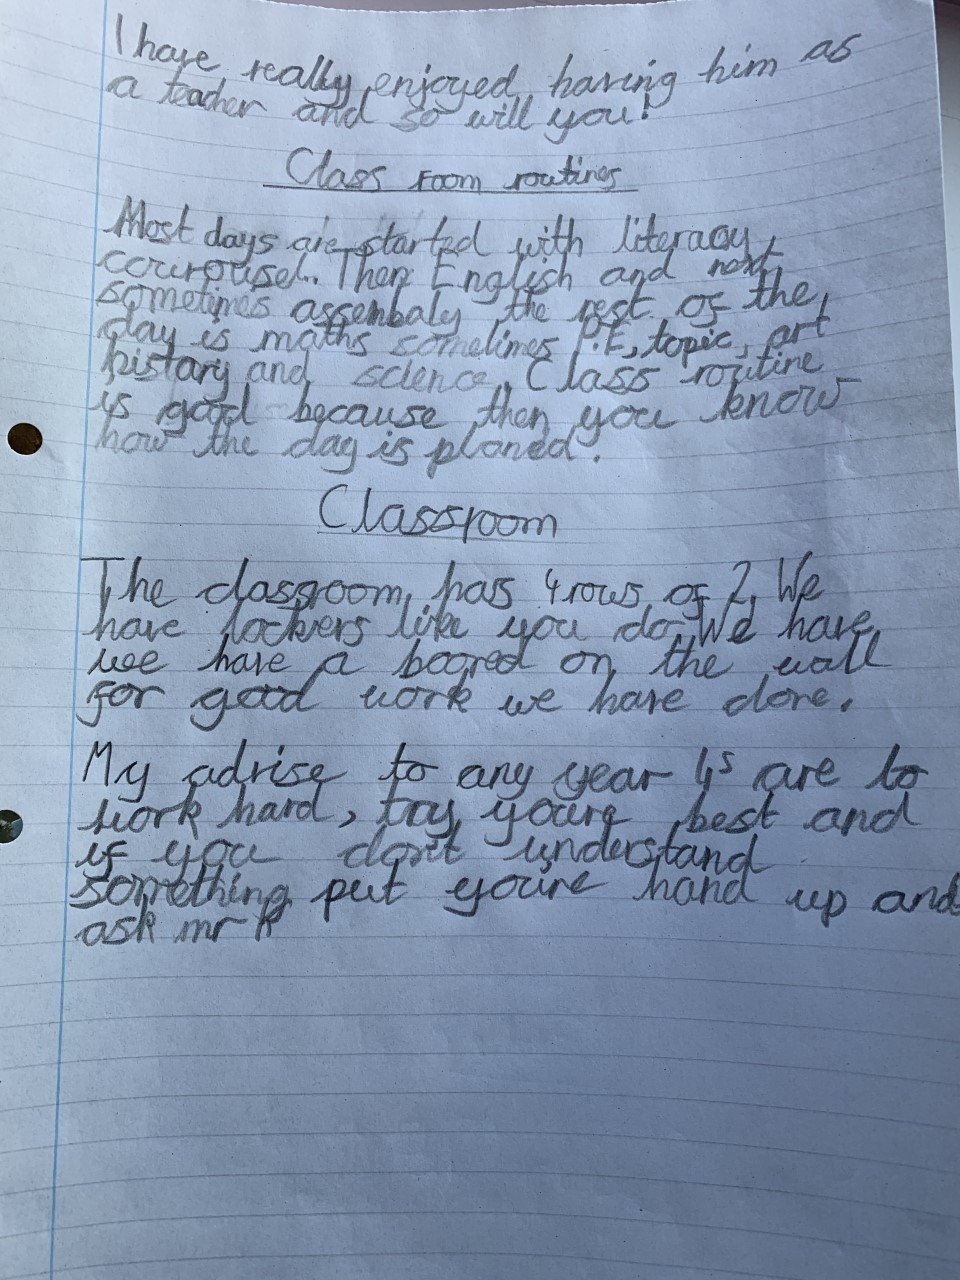 I have really enjoyed having him as
a teacher and so will you!
Class room routines
Most days are started with literacy
courousel. Then English and next
sometimes assembaly the rest of the
day is maths sometimes P.E, topic, art
history and science. Class routine
is good because then you know
how the day is planed.
Classroom
The classroom has 4 rows of 2. We
have lockers like you do. We have
we have a boored on the wall
for good work we have done.
My advise to any year 4s are to
work hard, try youre best and
if you don't understand
something put youre hand up and
ask mr K